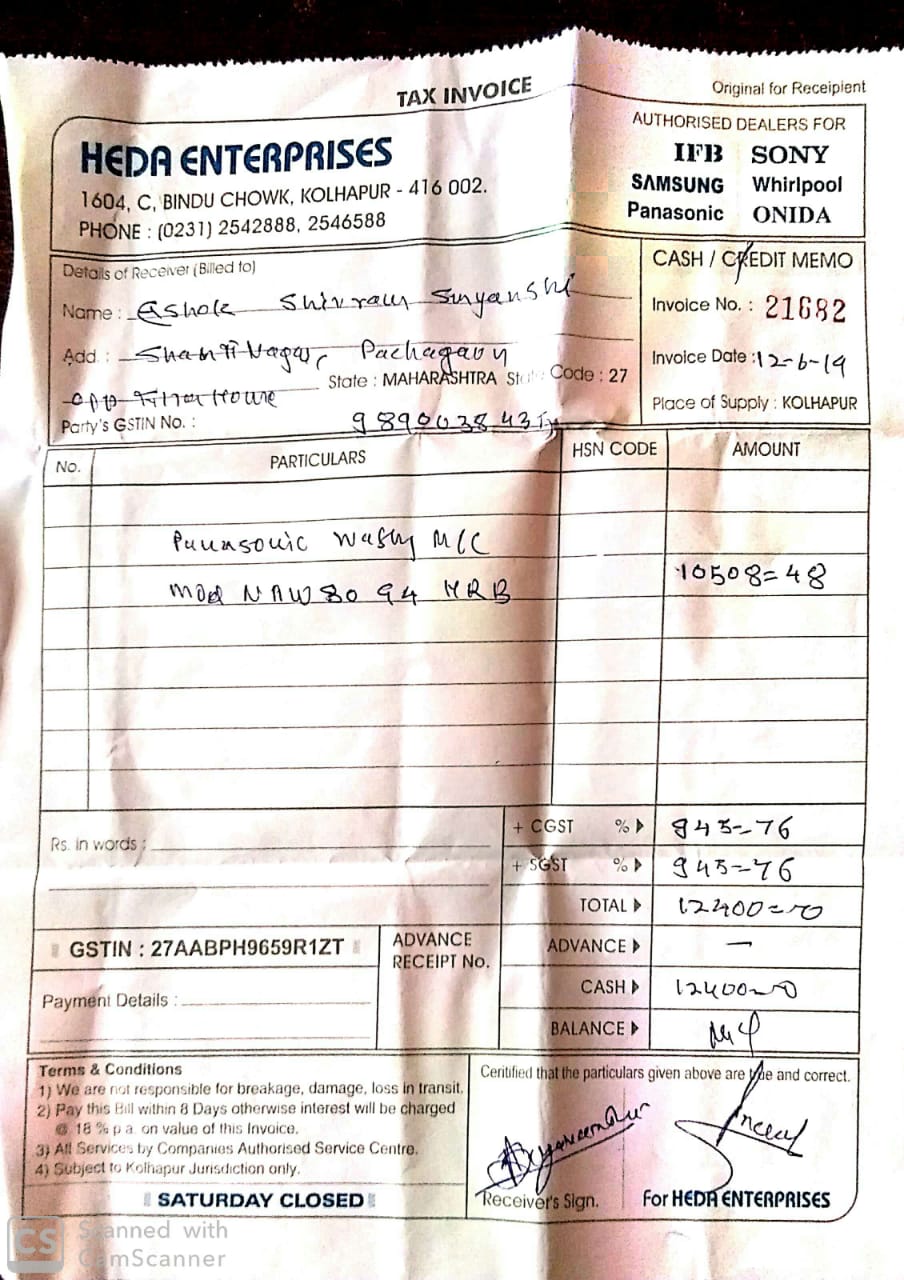 TAX INVOICE
Original for Receipient
HEDA ENTERPRISES
1604, C, BINDU CHOWK, KOLHAPUR - 416 002.
PHONE : (0231) 2542888, 2546588
AUTHORISED DEALERS FOR
IFB SONY
SAMSUNG Whirlpool
Panasonic ONIDA
Details of Receiver (Billed to)
Name : Ashok Shivram Suryanshi
Add. : Shanti Nagar, Pachagaon
opp
State : MAHARASHTRA State Code : 27
Party's GSTIN No. :
CASH / CREDIT MEMO
Invoice No. : 21682
Invoice Date : 12-6-19
Place of Supply : KOLHAPUR
No. PARTICULARS HSN CODE AMOUNT
Panasonic M/C
NAW80 10508=48
Rs. In words :
+ CGST % 945=76
+ SGST % 945=76
TOTAL 12400=00
GSTIN : 27AABPH9659R1ZT
ADVANCE RECEIPT No.
ADVANCE —
Payment Details :
CASH 12400=00
BALANCE Nil
Terms & Conditions
1) We are not responsible for breakage, damage, loss in transit.
2) Pay this Bill within 8 Days otherwise interest will be charged
@ 18 % p.a. on value of this Invoice.
3) All Services by Companies Authorised Service Centre.
4) Subject to Kolhapur Jurisdiction only.
SATURDAY CLOSED
Ceritified that the particulars given above are true and correct.
Receiver's Sign.
For HEDA ENTERPRISES
CS Scanned with
CamScanner